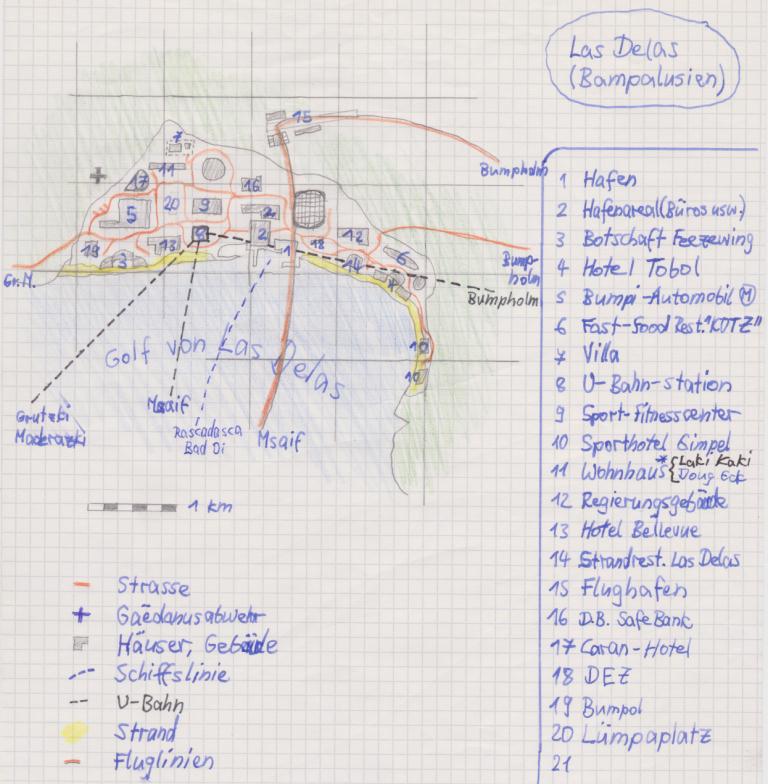 Las Delas
(Bampalusien)
7
15
11
17
16
5
20
9
2
2
8
1
18
12
6
19
3
13
14
4
10
10
Bumpholm
Bump-
holm
Bumpholm
Gr. M.
Golf von Las Delas
Grutzki
Maderazki
Msaif
Rascadasca
Bad Di
Msaif
1 km
Strasse
Gaëdanusabwehr
Häuser, Gebäude
Schiffslinie
U-Bahn
Strand
Fluglinien
1 Hafen
2 Hafenareal (Büros usw.)
3 Botschaft Feezewing
4 Hotel Tobol
5 Bumpi-Automobil M
6 Fast-Food Rest. "KOTZ"
7 Villa
8 U-Bahn-station
9 Sport-Fitnesscenter
10 Sporthotel Gimpel
11 Wohnhaus* { Laki Kaki
Doug Eck
12 Regierungsgebäude
13 Hotel Bellevue
14 Strandrest. Las Delas
15 Flughafen
16 D.B. Safe Bank
17 Caran-Hotel
18 DEZ
19 Bumpol
20 Lümpaplatz
21